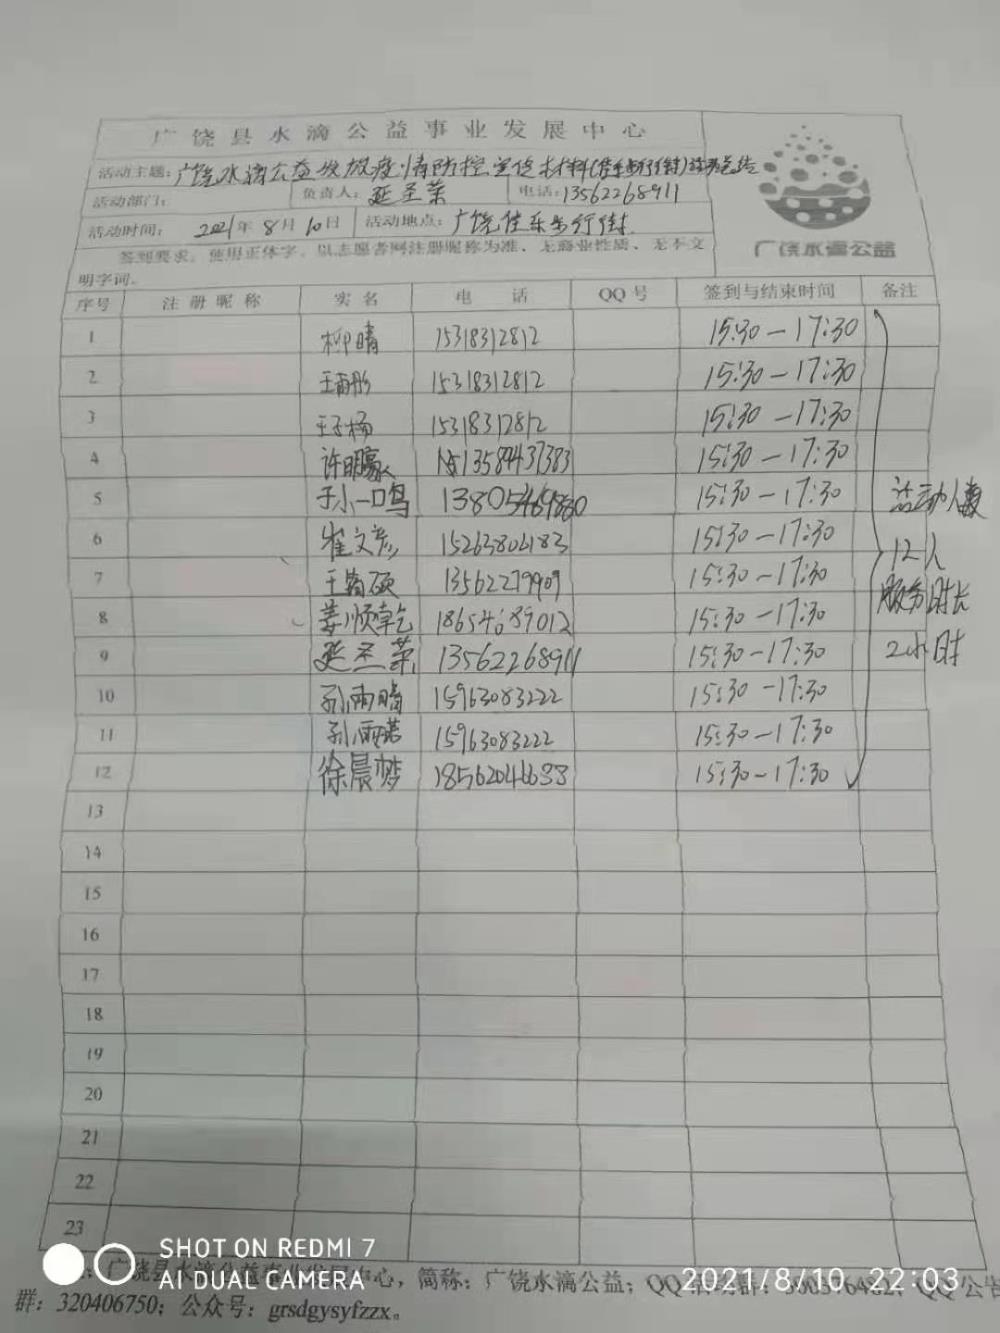 广饶县水滴公益事业发展中心
活动主题：广饶水滴公益发放疫情防控宣传材料(佳乐步行街)活动总结
活动部门： 负责人：延圣荣 电话：13562268911
活动时间： 2021年8月10日 活动地点：广饶佳乐步行街
广饶水滴公益
签到要求：使用正体字，以志愿者网注册昵称为准、无商业性质、无不文
明字词。
序号 注册昵称 实名 电话 QQ号 签到与结束时间 备注
1 柳晴 15318312812 15:30-17:30
2 王雨彤 15318312812 15:30-17:30
3 王子杨 15318312812 15:30-17:30
4 许明 13589437383 15:30-17:30
5 于小一 13805469880 15:30-17:30 活动人数
6 崔文彦 15263806183 15:30-17:30 12人
7 王硕 13562279909 15:30-17:30
8 姜顺乾 18654689012 15:30-17:30 服务时长
9 延圣荣 13562268911 15:30-17:30 2小时
10 孙雨晴 15963083222 15:30-17:30
11 孙雨 15963083222 15:30-17:30
12 徐晨梦 18562046633 15:30-17:30
13
14
15
16
17
18
19
20
21
22
23
SHOT ON REDMI 7
AI DUAL CAMERA
2021/8/10 22:03
广饶县水滴公益事业发展中心，简称：广饶水滴公益；QQ公告
群：320406750；公众号：grsdgysyfzzx。